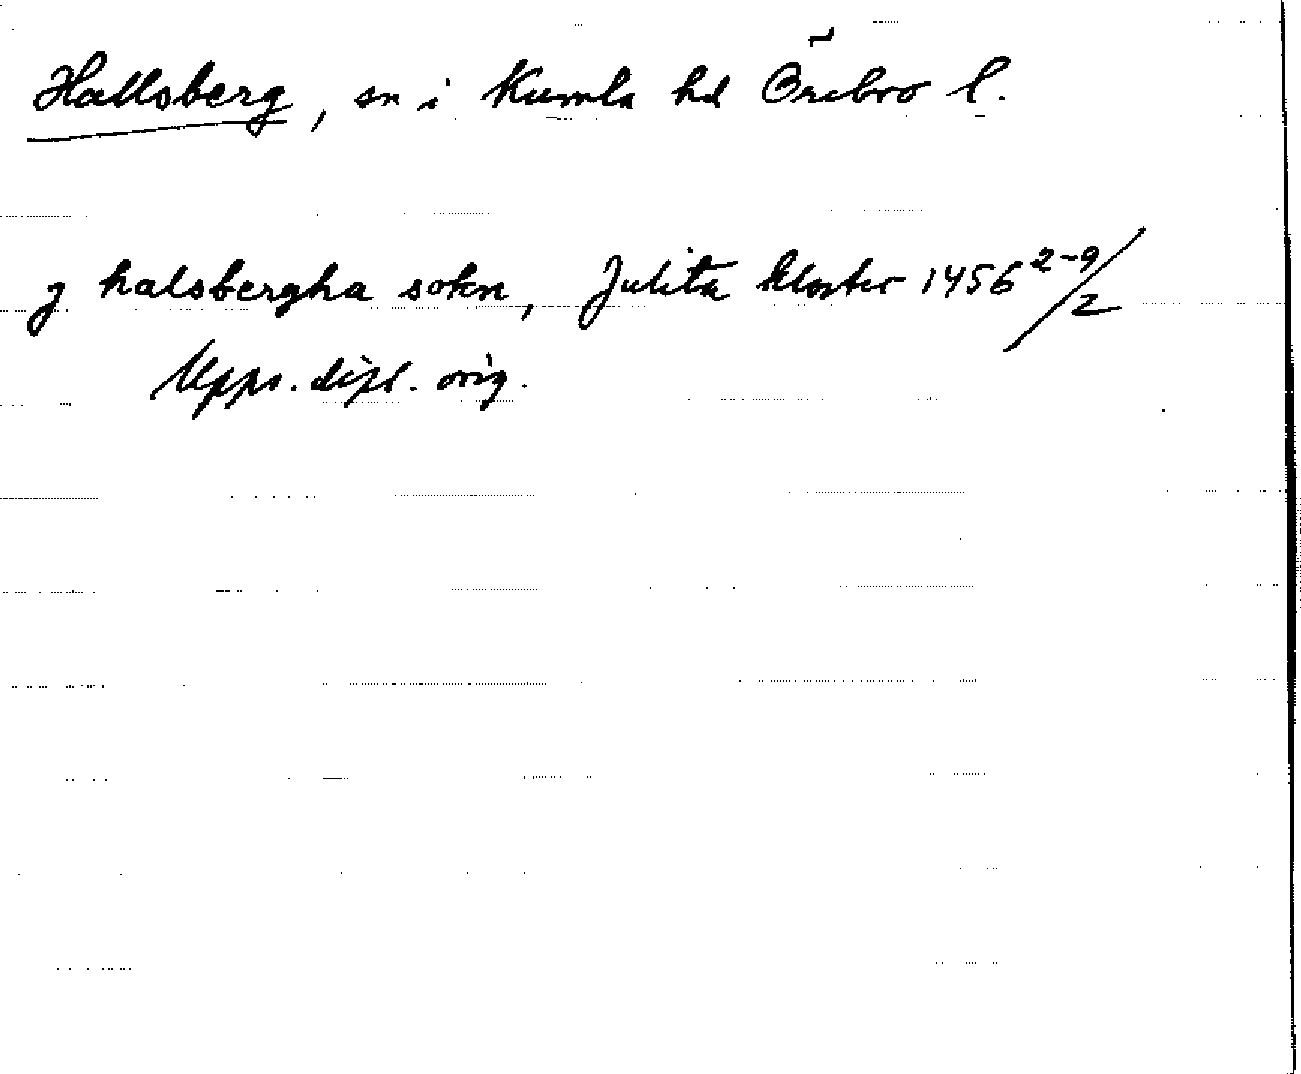 Hallsberg, sn i Kumla hd Örebro l.
j halsbergha sokn, Julita kloster 1456 2-9/2
Upps. dipl. orig.